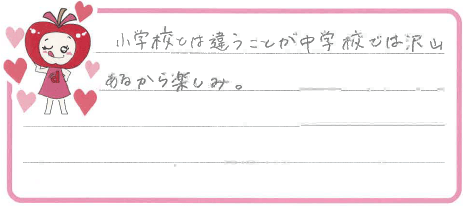 小学校とは違うことが中学校では沢山
あるから楽しみ。